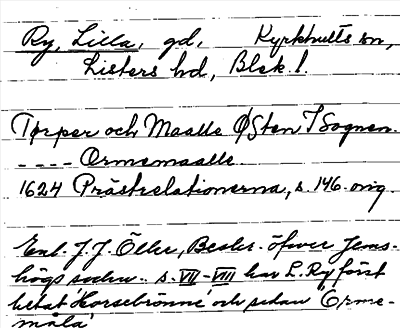 Ry, Lilla, gd, Kyrkhults sn,
Listers hd, Blek. l.
Torper och Maalle Østen I Sognen.
---- Ormemaalle.
1624 Prästrelationerna, s. 146. orig.
Enl. J. J. Öller, Beskr. öfwer Jems-
högs sochn. s. VII-VIII har L. Ry först
hetat 'Horsebrönne' och sedan 'Orme-
måla'